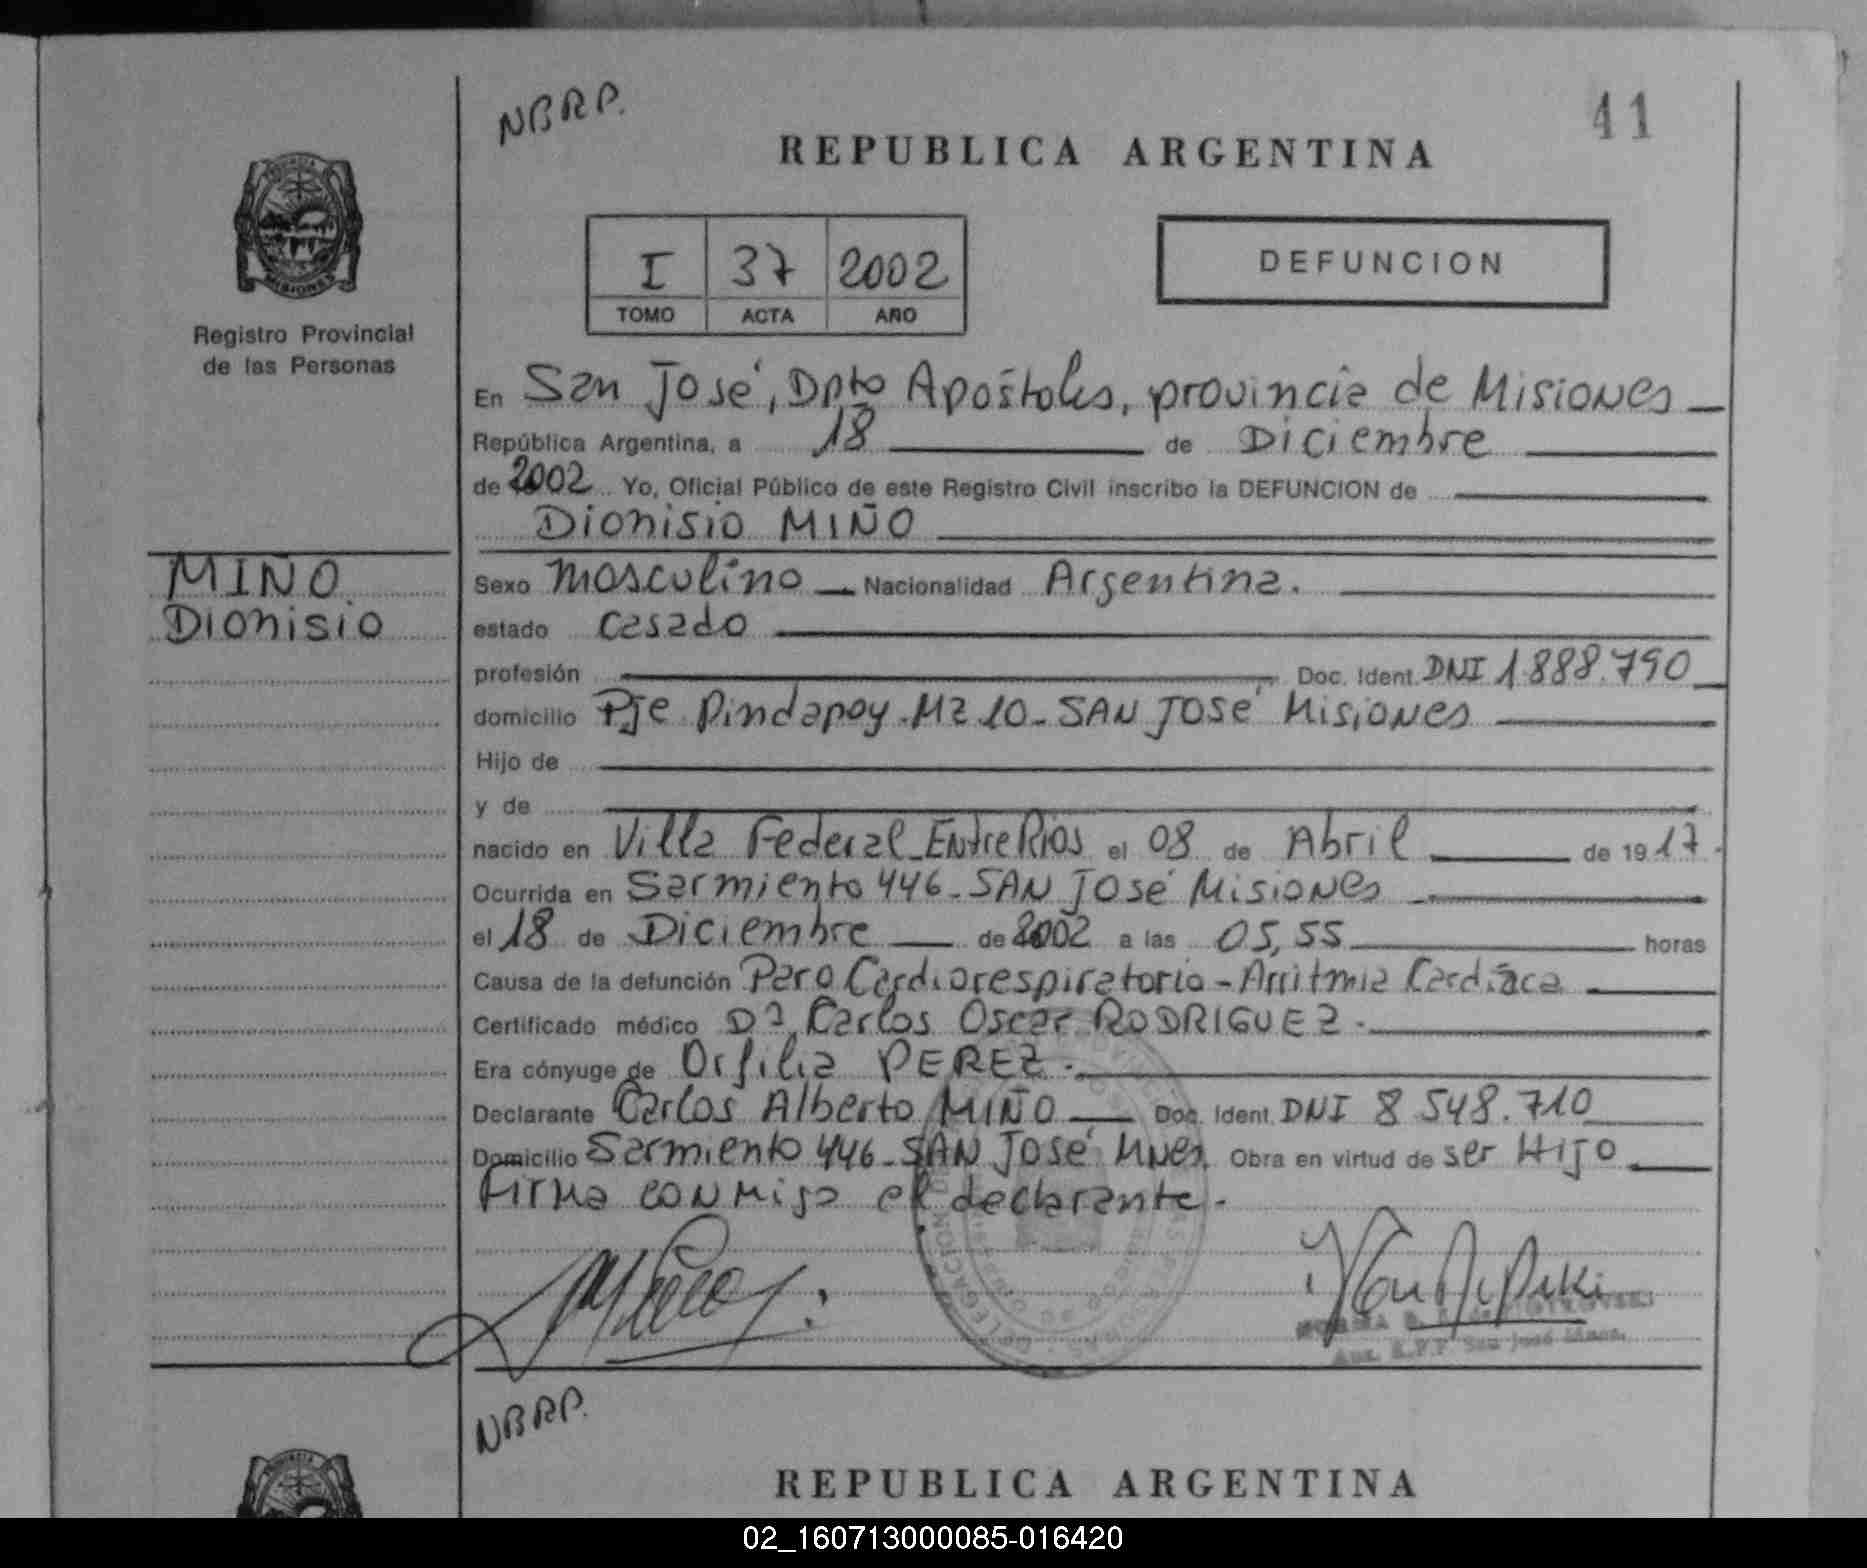 NBRP.
41
REPUBLICA ARGENTINA
MISIONES
Registro Provincial
de las Personas
I 37 2002
TOMO ACTA AÑO
DEFUNCION
En San José, Dpto Apóstoles, provincia de Misiones
República Argentina, a 18 de Diciembre
de 2002 Yo, Oficial Público de este Registro Civil inscribo la DEFUNCION de
Dionisio MIÑO
MIÑO
Dionisio
Sexo Masculino Nacionalidad Argentina.
estado casado
profesión Doc. Ident. DNI 1.888.790
domicilio Pje Pindapoy. Mz 10 - SAN JOSé Misiones
Hijo de
y de
nacido en Villa Federal - Entre Rios el 08 de Abril de 1917.
Ocurrida en Sarmiento 446 - SAN José Misiones
el 18 de Diciembre de 2002 a las 05,55 horas
Causa de la defunción Paro Cardiorespiratorio - Arritmia Cardíaca
Certificado médico Dr. Carlos Oscar RODRIGUEZ.
Era cónyuge de Orfilia PEREZ.
Declarante Carlos Alberto MIÑO Doc. Ident. DNI 8.548.710
Domicilio Sarmiento 446 - SAN José Mnes. Obra en virtud de ser Hijo
Firma conmigo el declarante.
Aux. R.P.P San José Mnes.
NBRP.
REPUBLICA ARGENTINA
02_160713000085-016420